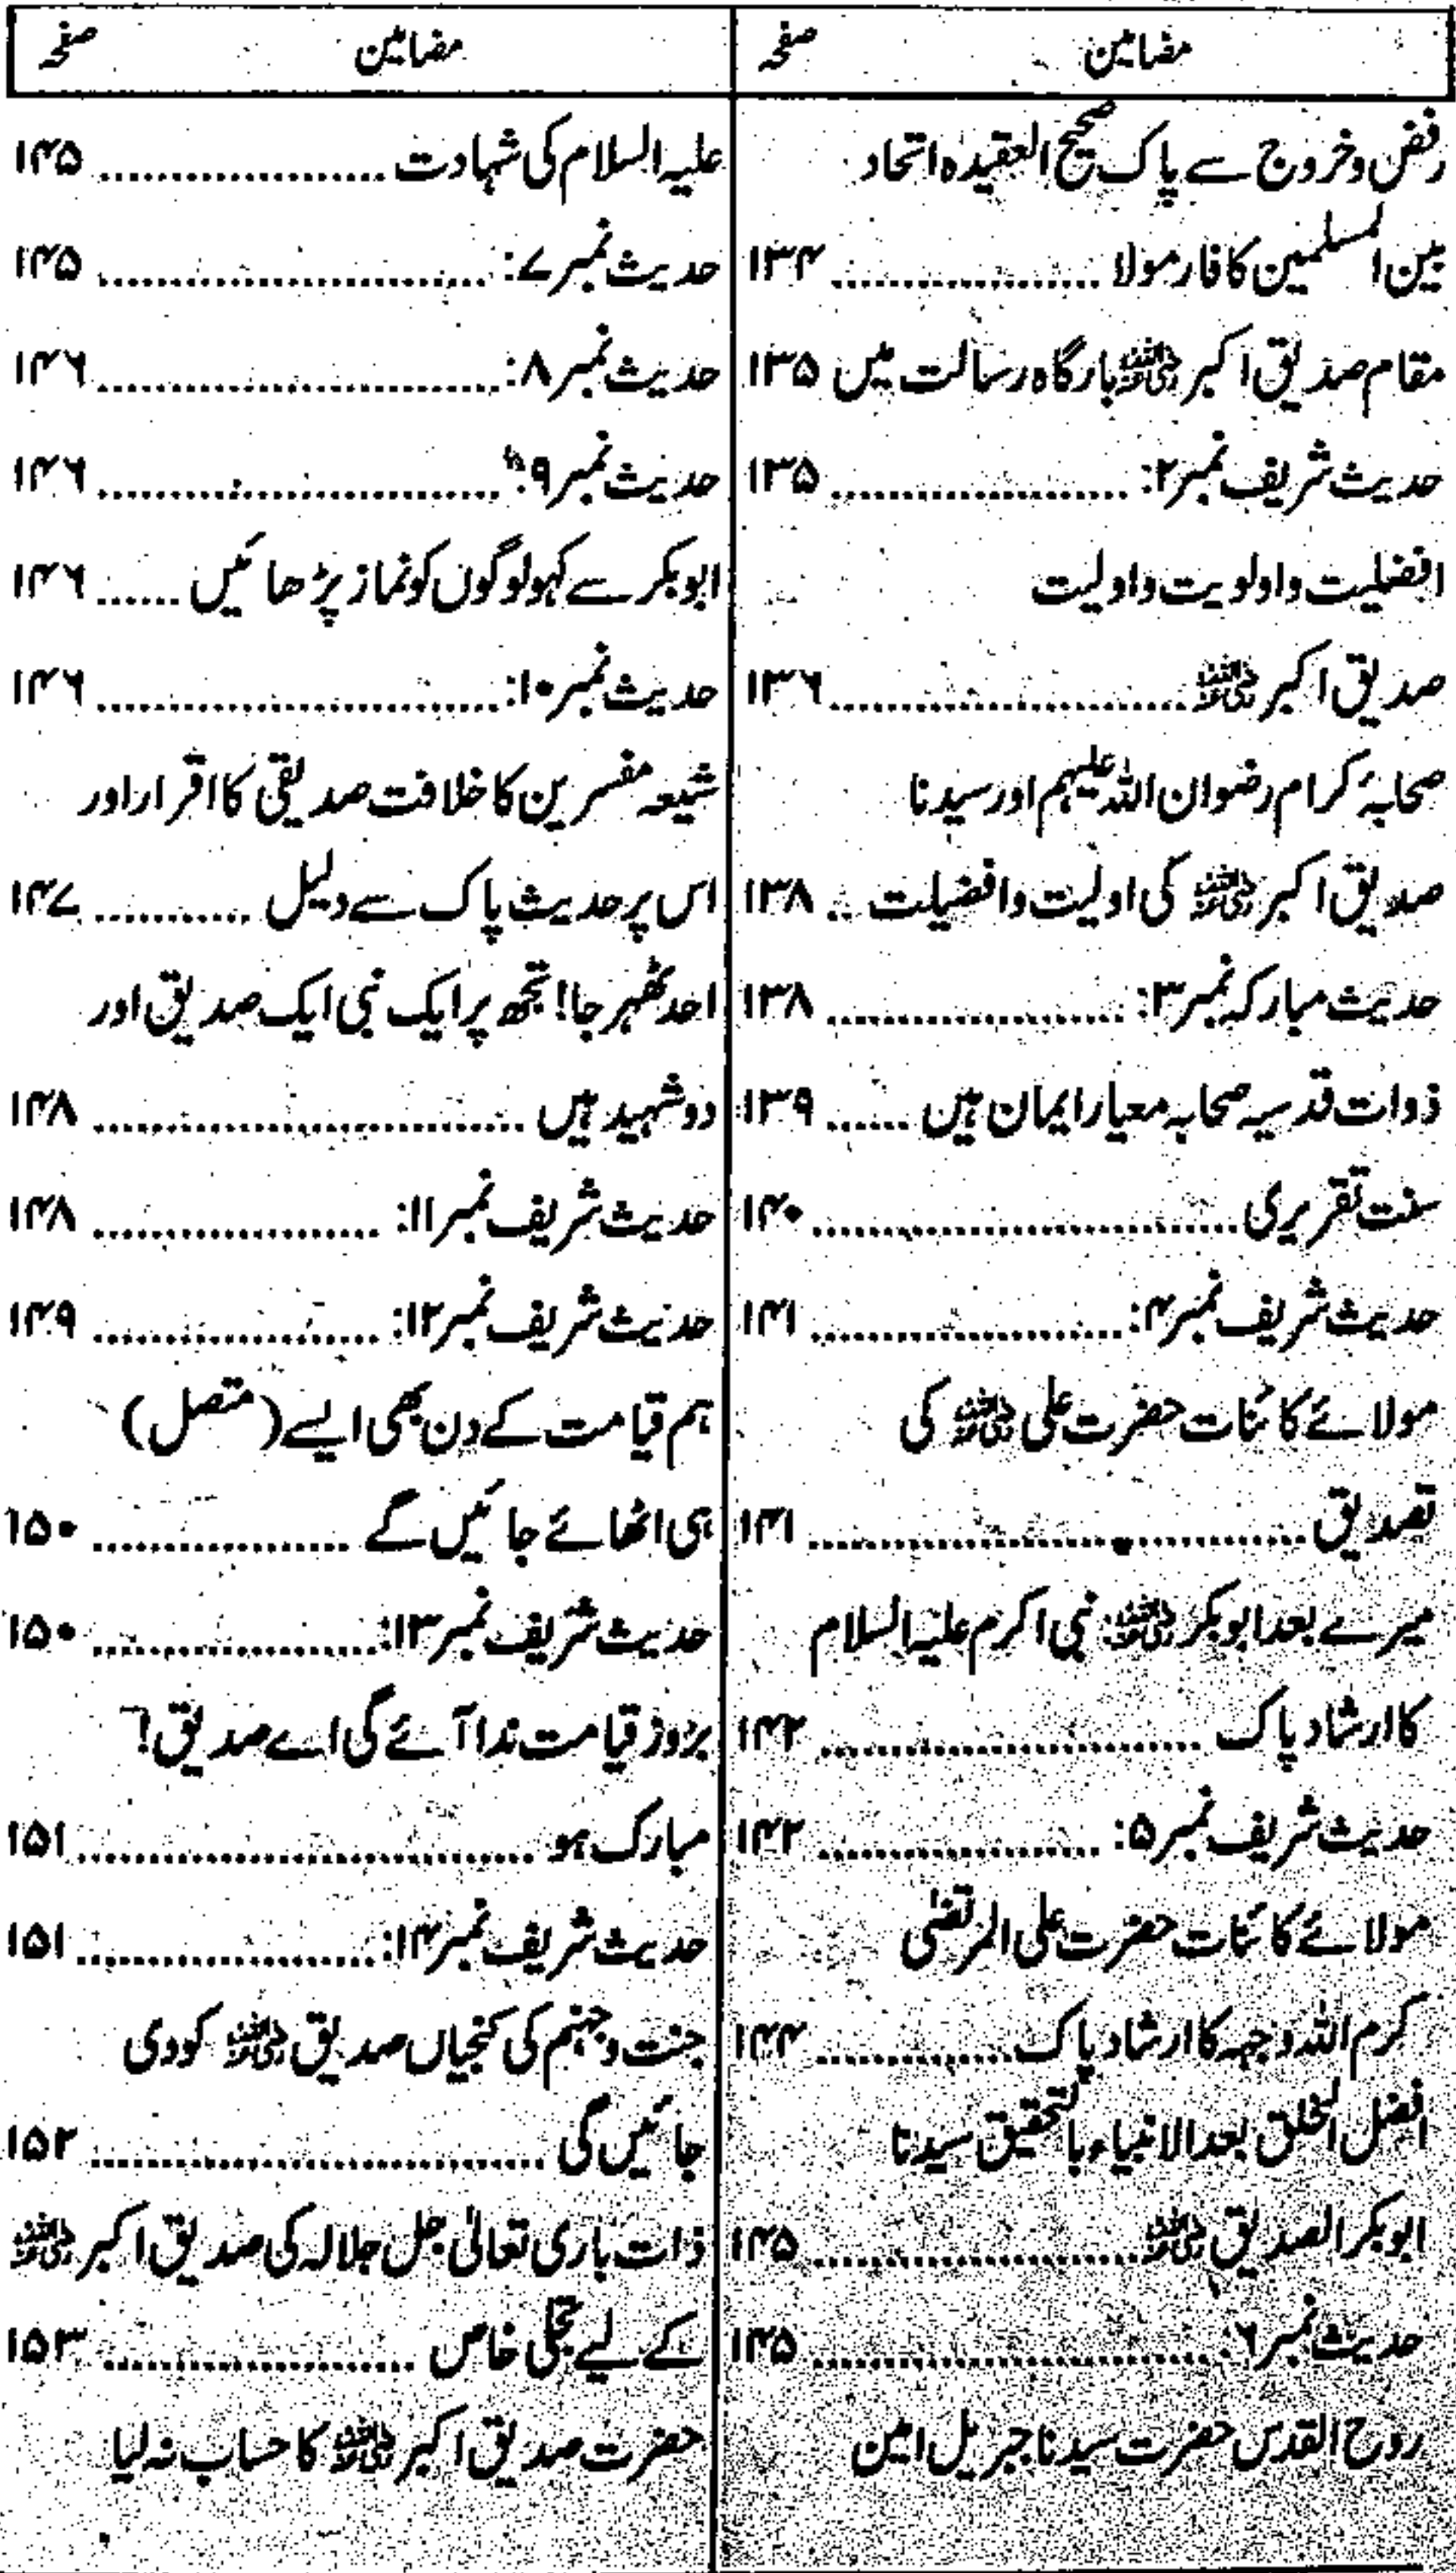 مضامین صفحہ
رفض وخروج سے پاک صحیح العقیدہ اتحاد
بین المسلمین کا فارمولا .................. ۱۳۴
مقام صدیق اکبر رضی اللہ عنہ بارگاہ رسالت میں ۱۳۵
حدیث شریف نمبر۲: .................. ۱۳۵
افضلیت واولویت واولیت
صدیق اکبر رضی اللہ عنہ .................. ۱۳۶
صحابۂ کرام رضوان اللہ علیہم اور سیدنا
صدیق اکبر رضی اللہ عنہ کی اولیت وافضیلت .. ۱۳۸
حدیث مبارکہ نمبر۳: .................. ۱۳۸
ذوات قدسیہ صحابہ معیار ایمان ہیں ...... ۱۳۹
سنت تقریری .................. ۱۴۰
حدیث شریف نمبر۴: .................. ۱۴۱
مولائے کائنات حضرت علی رضی اللہ عنہ کی
تصدیق .................. ۱۴۱
میرے بعد ابوبکر رضی اللہ عنہ نبی اکرم علیہ السلام
کا ارشاد پاک .................. ۱۴۲
حدیث شریف نمبر۵: .................. ۱۴۲
مولائے کائنات حضرت علی المرتضیٰ
کرم اللہ وجہہ کا ارشاد پاک .................. ۱۴۴
افضل الخلق بعد الانبیاء بالتحقیق سیدنا
ابوبکر الصدیق رضی اللہ عنہ .................. ۱۴۵
حدیث نمبر۶: .................. ۱۴۵
روح القدس حضرت سیدنا جبریل امین
مضامین صفحہ
علیہ السلام کی شہادت .................. ۱۴۵
حدیث نمبر۷: .................. ۱۴۵
حدیث نمبر۸: .................. ۱۴۶
حدیث نمبر۹: .................. ۱۴۶
ابوبکر سے کہو لوگوں کو نماز پڑھائیں ...... ۱۴۶
حدیث نمبر۱۰: .................. ۱۴۶
شیعہ مفسرین کا خلافت صدیقی کا اقرار اور
اس پر حدیث پاک سے دلیل ........... ۱۴۷
احد ٹھہر جا! تجھ پر ایک نبی ایک صدیق اور
دو شہید ہیں .................. ۱۴۸
حدیث شریف نمبر۱۱: .................. ۱۴۸
حدیث شریف نمبر۱۲: .................. ۱۴۹
ہم قیامت کے دن بھی ایسے (متصل)
ہی اٹھائے جائیں گے .................. ۱۵۰
حدیث شریف نمبر۱۳: .................. ۱۵۰
بروز قیامت ندا آئے گی اے صدیق!
مبارک ہو .................. ۱۵۱
حدیث شریف نمبر۱۴: .................. ۱۵۱
جنت وجہنم کی کنجیاں صدیق رضی اللہ عنہ کو دی
جائیں گی .................. ۱۵۲
ذات باری تعالیٰ جل جلالہ کی صدیق اکبر رضی اللہ عنہ
کے لیے تجلی خاص .................. ۱۵۳
حضرت صدیق اکبر رضی اللہ عنہ کا حساب نہ لیا